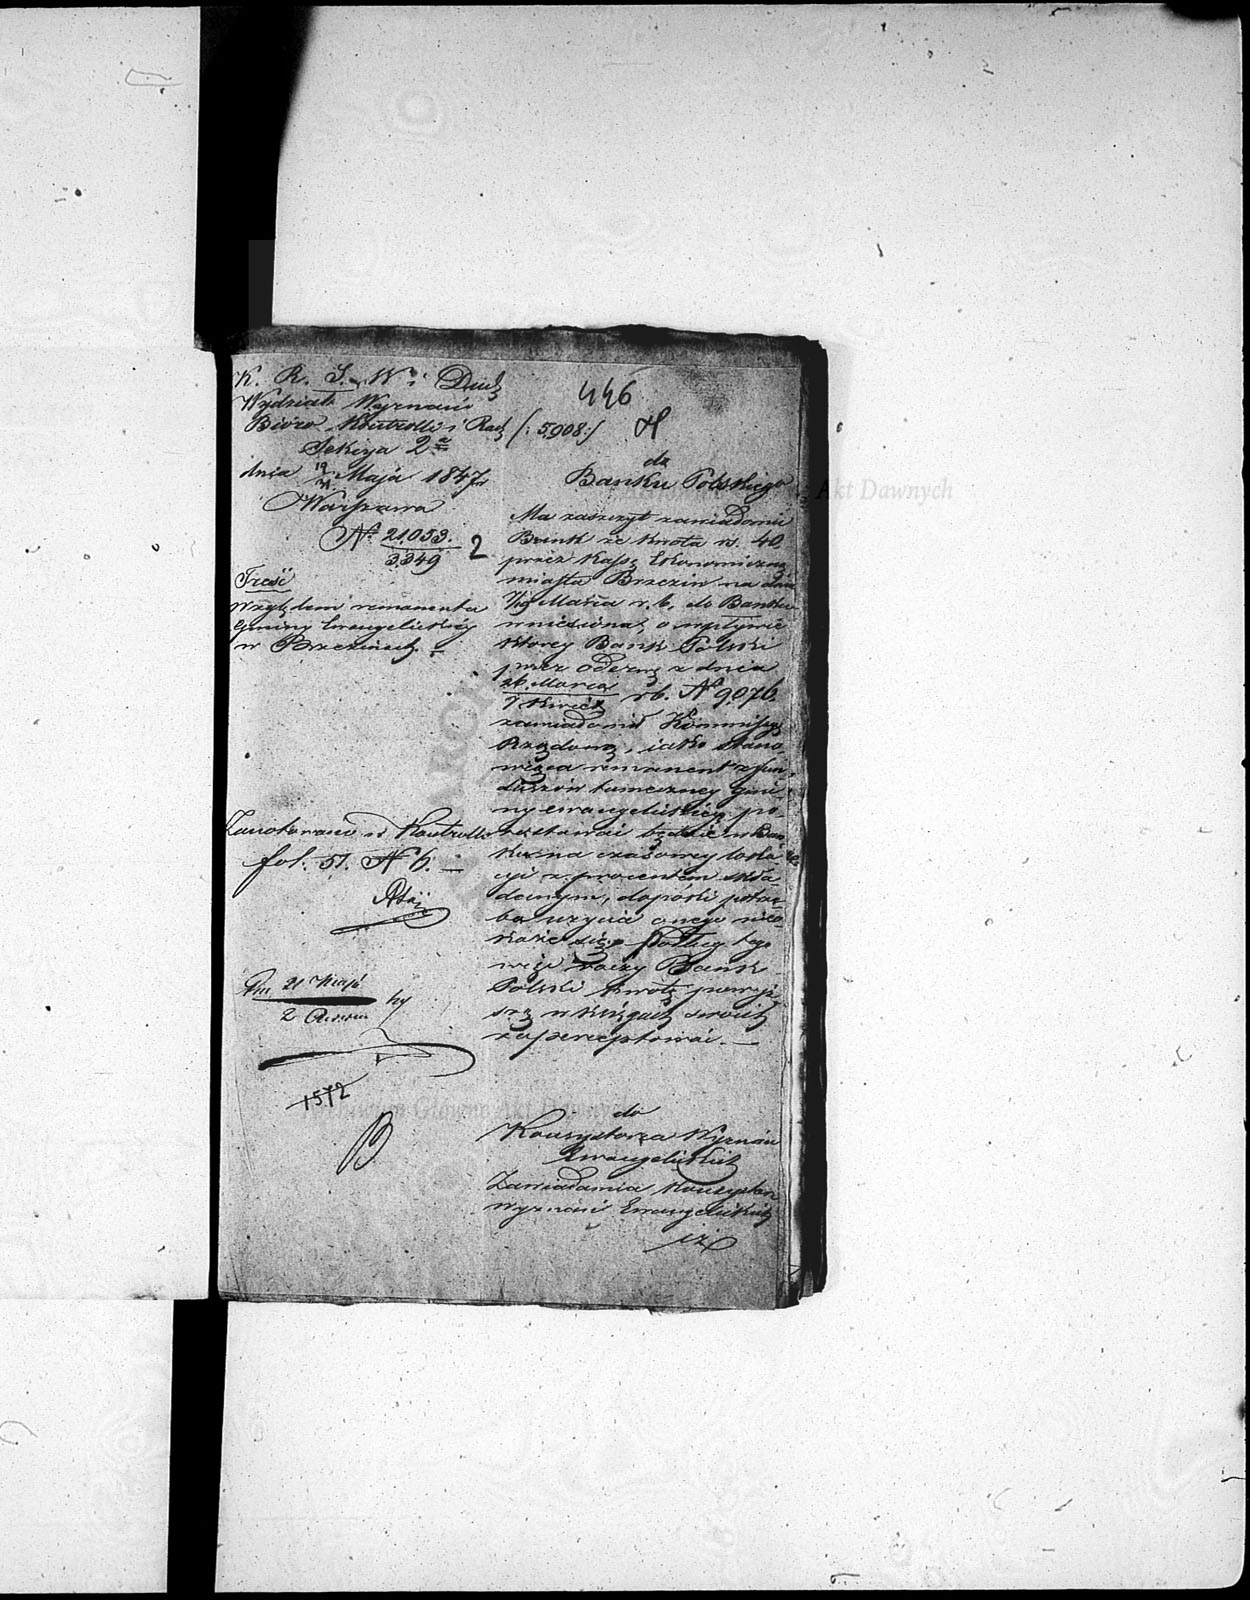 K. R. S. W. i Duch
Wydział Wyznań
Biuro Kontrolli i Rach /: 5908:/
Sekcya 2a
dnia 19/31 Maja 1847 r.
Warszawa
No 21,053.
3349
2
Treść
Względem remanentu
Gminy Ewangelickiéy
w Brzezinach. –
Zanotowano w Kontrolli
fol. 51. No 6. –
dn. 21 Maja
2 Czerwca
1572
B
446
do
Banku Polskiego
Ma zaszczyt zawiadomić
Bank że kwota rs. 40,
przez Kassę Ekonomiczną
miasta Brzezin na dniu
Marca r. b. do Banku
wniesiona, o wpływie
którey Bank Polski
przez odezwę z dnia
26 Marca
7 Kwiet. r b. No 9076.
zawiadomił Kommissyę
Rządową, iako stano-
wiąca remanent z fun-
duszów tameczney gmi-
ny ewangelickiéy po-
zostawać będzie w Ban-
ku na czasowey loka-
cyi z procentem skła-
danym, dopóki potrze-
ba użycia onego nieo-
każe się. Podług tego
więc raczy Bank
Polski kwotę powyż-
szą w księgach swoich
zaperceptować. –
do
Konsystorza Wyznań
Ewangelickich
Zawiadamia Konsystorz
wyznań Ewangelickich
iż
Archiwum Główne Akt Dawnych
Akt Dawnych